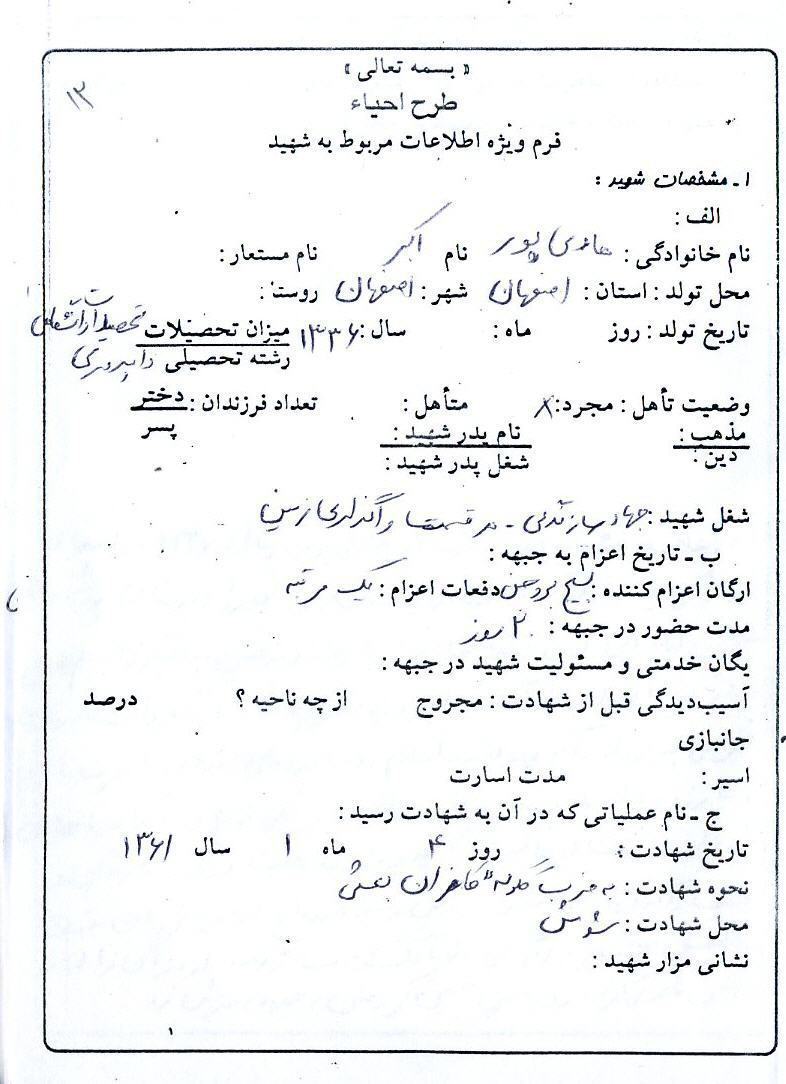 « بسمه تعالی »
طرح احیاء
۱۳
فرم ویژه اطلاعات مربوط به شهید
۱ـ مشخصات شهید :
الف :
نام خانوادگی : هادی پور نام اکبر نام مستعار :
محل تولد : استان : اصفهان شهر : اصفهان روستا :
تاریخ تولد : روز ماه : سال : ۱۳۳۶ میزان تحصیلات
رشته تحصیلی دامپروری
وضعیت تأهل : مجرد : x متأهل : تعداد فرزندان : دختر
پسر
مذهب : نام پدر شهید :
دین : شغل پدر شهید :
شغل شهید : جهاد سازندگی - در قسمت واگذاری زمین
ب ـ تاریخ اعزام به جبهه :
ارگان اعزام کننده : بسیج دفعات اعزام : یک مرتبه
مدت حضور در جبهه : ۲۰ روز
یگان خدمتی و مسئولیت شهید در جبهه :
آسیب‌دیدگی قبل از شهادت : مجروح از چه ناحیه ؟ درصد
جانبازی
اسیر : مدت اسارت
ج ـ نام عملیاتی که در آن به شهادت رسید :
تاریخ شهادت : روز ۴ ماه ۱ سال ۱۳۶۱
نحوه شهادت : به ضرب گلوله کافران بعثی
محل شهادت : شوش
نشانی مزار شهید :
۱